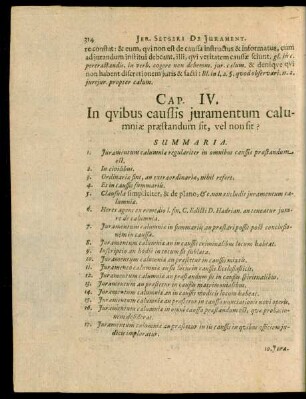 314 JER. SETSERI DE JURAMENT.
re constat: & eum, qvi non est de caussa instructus & informatus, eum
ad jurandum institui debeant, illi, qvi veritatem caussæ sciunt, gl. in c.
non habent discretionem juris & facti: Bl. in l. 2. §. quod observari. n. 2.
jurejur. propter calum.
CAP. IV.
In qvibus caussis juramentum calu-
mniæ præstandum sit, vel non sit?
SUMMARIA.
1. Juramentum calumniæ regulariter in omnibus caussis præstandum
est.
2. In civilibus.
3. Ordinaria sint, an extraordinaria, nihil refert.
4. Et in caussis summariis.
5. Clausula simpliciter, & de plano, &c. non excludit juramentum ca-
lumniæ.
6. Heres agens ex remedio l. fin. C. Edicti D. Hadrian. an teneatur jura-
re de calumnia.
7. Juramentum calumniæ in summariis an præstari possit post conclusio-
nem in caussa.
8. Juramentum calumniæ an in caussis criminalibus locum habeat.
9. Inscriptio an hodie in usu sit sublata.
10. Juramentum calumniæ an præstetur in caussis mixtis.
11. Juramentum calumniæ an in caussis Ecclesiasticis.
12. Juramentum calumniæ an præstandum sit in caussis spiritualibus.
13. Juramentum an præstetur in caussis matrimonialibus.
14. Juramentum calumniæ an in caussis modicis locum habeat.
15. Juramentum calumniæ an præstetur in caussis
16. Juramentum calumniæ an in omni caussa præstandum sit,
17. Juramentum calumniæ an præstetur in iis caussis in qvibus
imploratur.